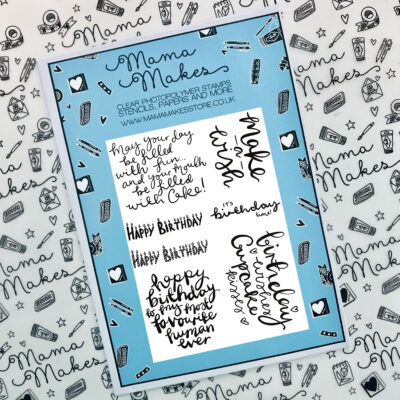 Mama
Makes
CLEAR PHOTOPOLYMER STAMPS
STENCILS, PAPERS AND MORE
WWW.MAMAMAKESSTORE.CO.UK
May your day
be filled
with fun..
and your mouth
be filled
with Cake!
make
a
wish
HAPPY BIRTHDAY
HAPPY BIRTHDAY
it's
birthday
time!
happy
birthday
to my most
favourite
human
ever
birthday
wishes
Cupcake
kisses
Mama
Makes